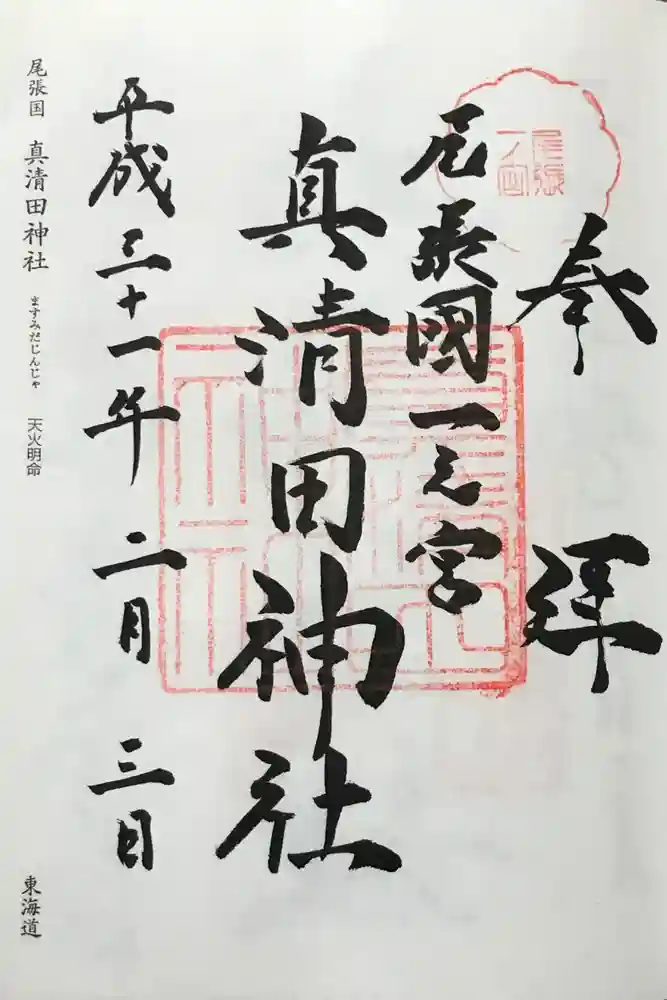 奉拝
尾張國一之宮
尾張
一ノ宮
真清田神社
平成三十一年二月三日
尾張国 真清田神社 ますみだじんじゃ 天火明命
東海道